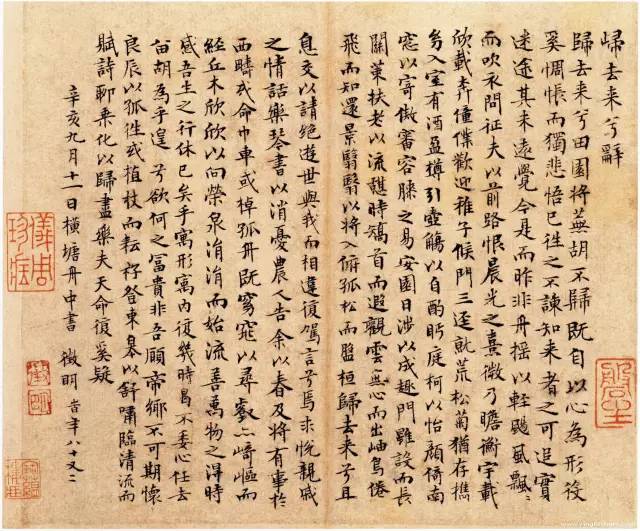 歸去来兮辭
歸去来兮田園将蕪胡不歸既自以心為形役
奚惆悵而獨悲悟已往之不諫知来者之可追實
迷途其未遠覺今是而昨非舟揺以輊颺風飄〻
而吹衣問征夫以前路恨晨光之熹微乃瞻衡宇載
欣載奔僮僕歡迎稚子候門三逕就荒松菊猶存携
幼入室有酒盈樽引壺觴以自酌眄庭柯以怡顔倚南
窓以寄傲審容膝之易安園日涉以成趣門雖設而長
關策扶老以流憩時矯首而遐觀雲無心而出岫鳥倦
飛而知還景翳翳以将入孤松而盤桓歸去来兮且
息交以請絶遊世與我而相違復駕言兮焉求悅親戚
之情話樂琴書以消憂農人告余以春及将有事於
西疇或命巾車或棹孤舟既窈窕以尋壑亦崎嶇而
経丘木欣欣以向榮泉涓涓而始流善萬物之得時
感吾生之行休已矣乎寓形寓内復幾時曷不委心任去
留胡為乎遑兮欲何之富貴非吾願帝鄉不可期懷
良辰以孤徃或植杖而耘耔登東皐以舒嘯臨清流而
賦詩聊乗化以歸盡樂夫天命復奚疑
辛亥九月十一日横塘舟中書 徴明 旹年八十又二